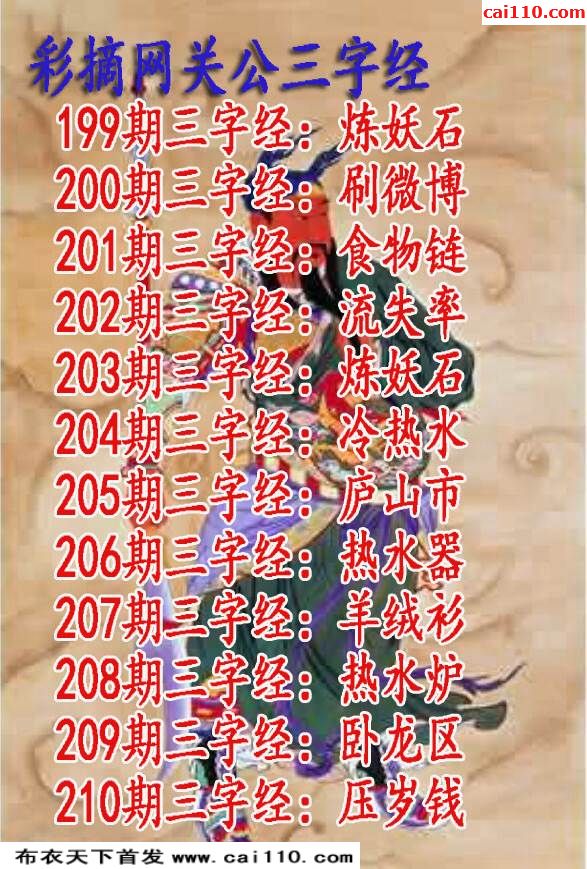 cai110.com
彩摘网关公三字经
199期三字经：炼妖石
200期三字经：刷微博
201期三字经：食物链
202期三字经：流失率
203期三字经：炼妖石
204期三字经：冷热水
205期三字经：庐山市
206期三字经：热水器
207期三字经：羊绒衫
208期三字经：热水炉
209期三字经：卧龙区
210期三字经：压岁钱
布衣天下首发 www.cai110.com